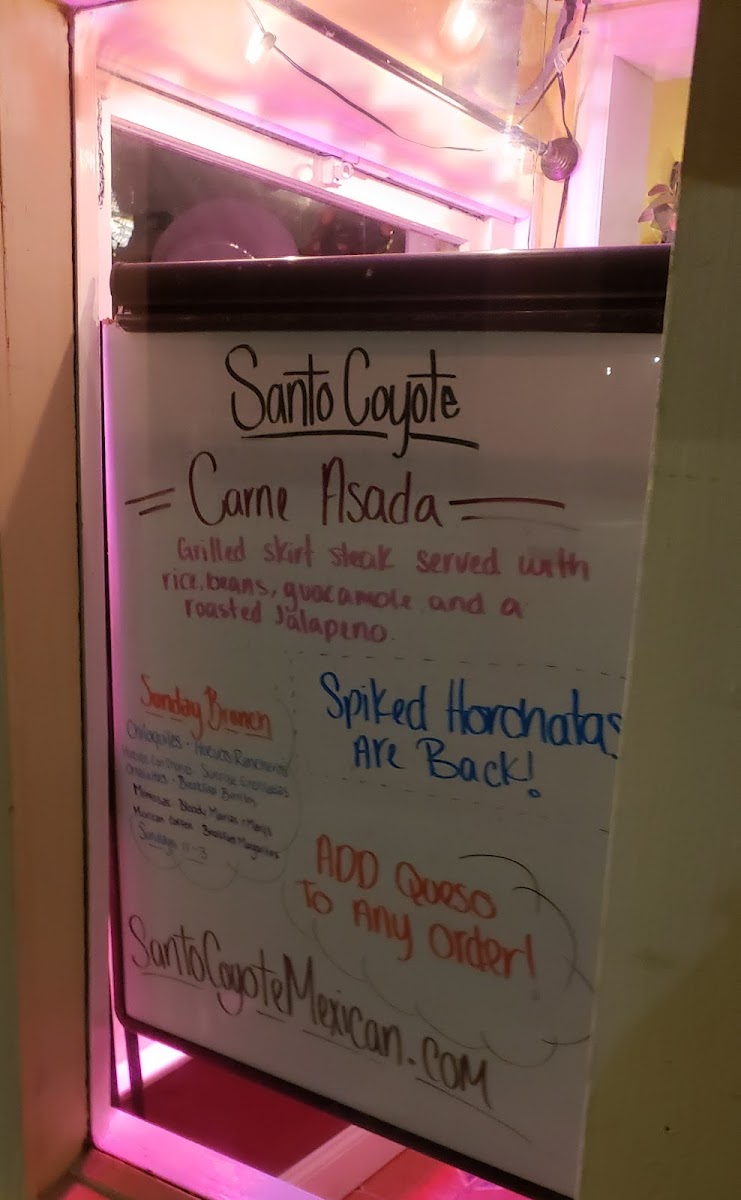 Santo Coyote
Carne Asada
Grilled skirt steak served with
rice, beans, guacamole and a
roasted Jalapeno.
Sunday Brunch
Chilaquiles · Huevos Rancheros
Sunrise Enchiladas
Omelettes · Breakfast Burritos
Mimosas Bloody Marias + Marys
Mexican Coffee · Breakfast Margaritas
Sundays 11-3
Spiked Horchatas
Are Back!
ADD Queso
To Any Order!
SantoCoyoteMexican.com